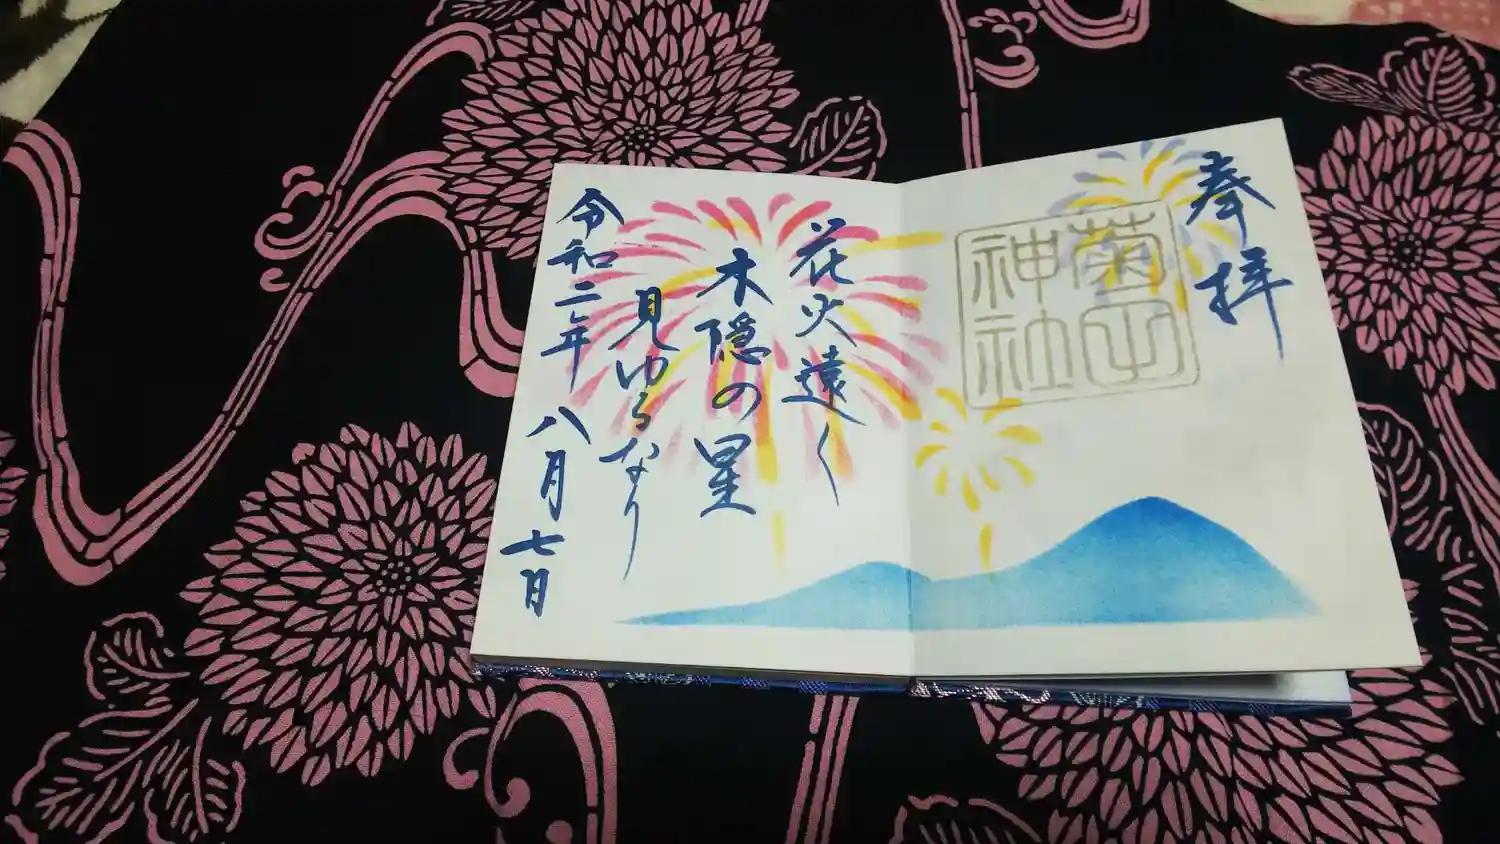 奉拝
菊田
神社
花火遠く
木隠の星
見ゆるなり
令和二年 八月七日